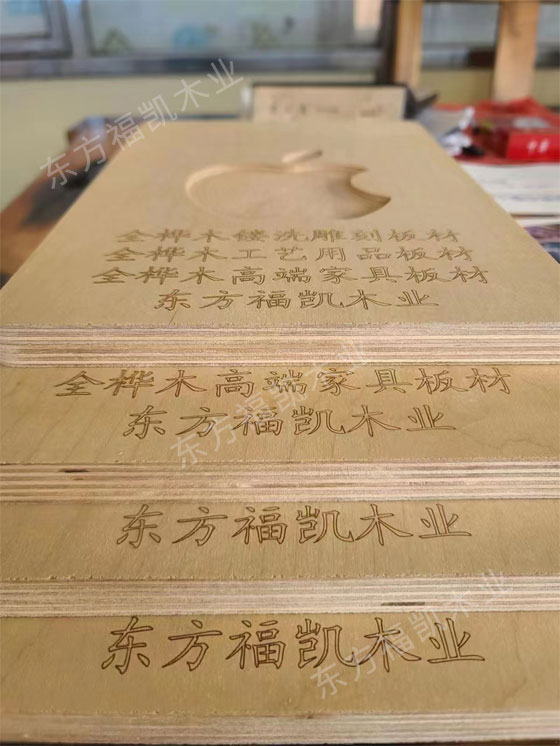 东方福凯木业
全桦木镂洗雕刻板材
全桦木工艺用品板材
全桦木高端家具板材
东方福凯木业
东方福凯木业
全桦木高端家具板材
东方福凯木业
东方福凯木业
东方福凯木业
东方福凯木业